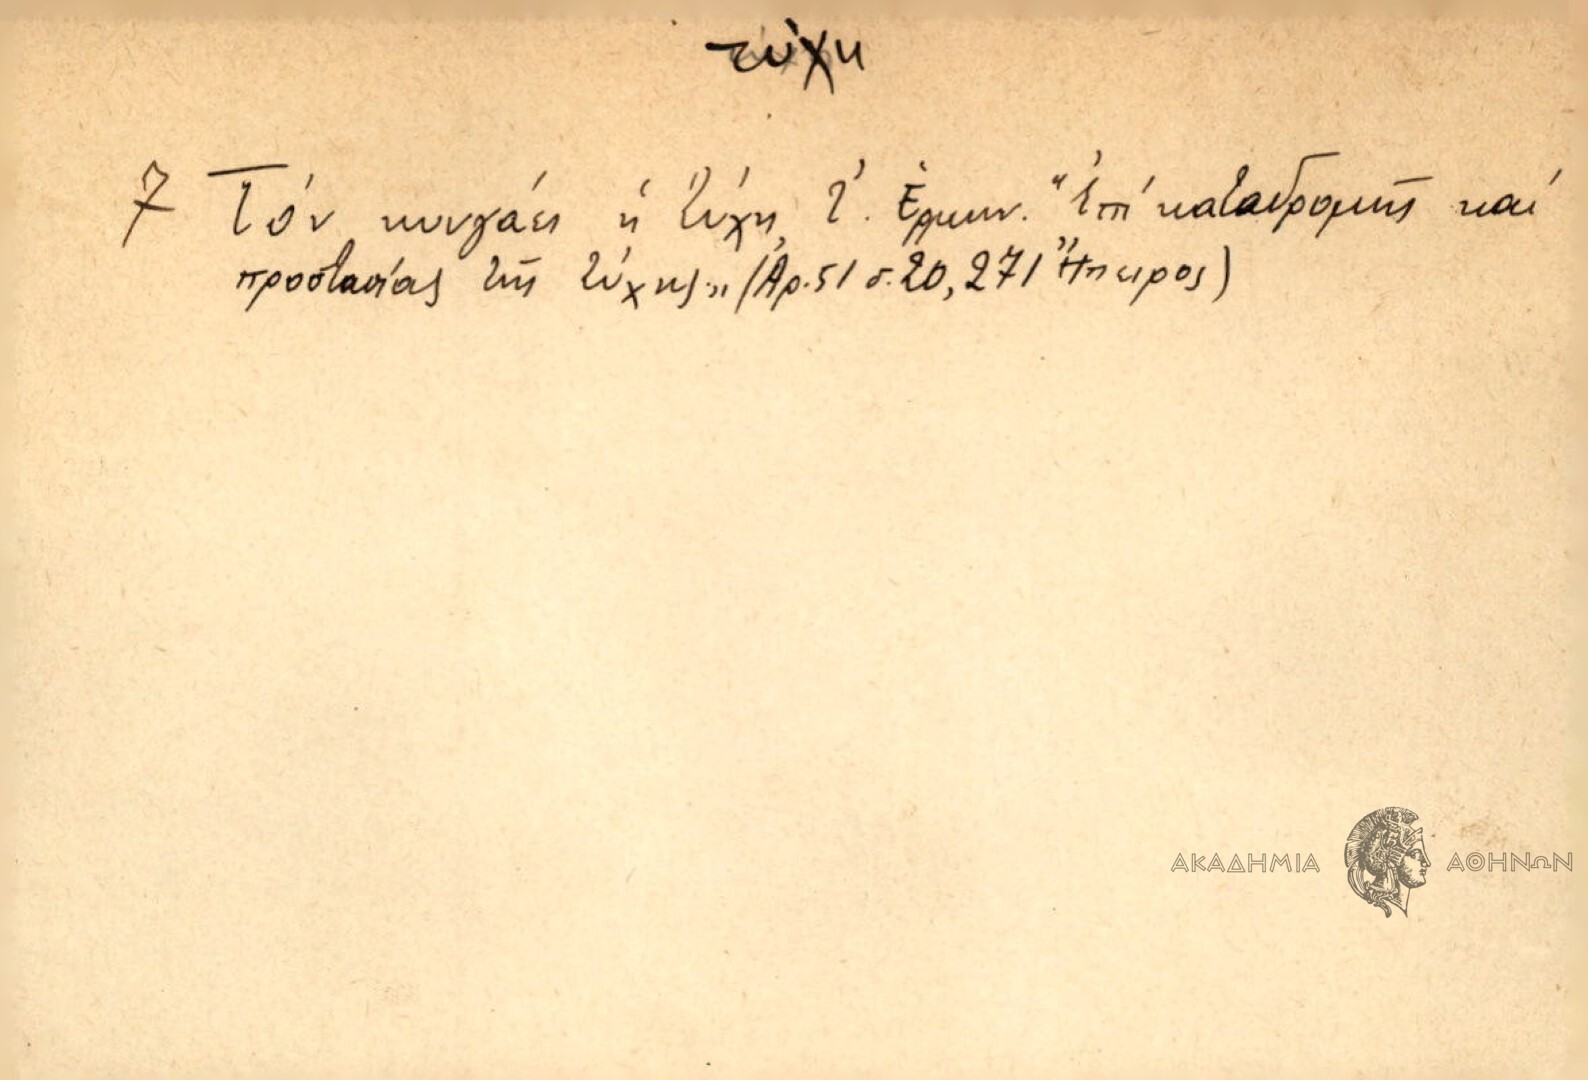 τύχη
7 Τόν κυνγάει ἡ τύχη τ'. Ἑρμην. "Ἐπί καταδρομῆς καί
προστασίας τῆς τύχης„ (Ἀρ. 51 σ. 20, 271 Ἤπειρος)
ΑΚΑΔΗΜΙΑ ΑΘΗΝΩΝ